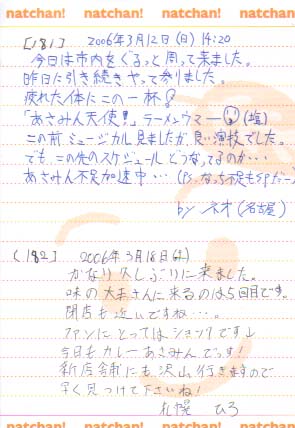 natchan! natchan! natchan! natchan!
[181] 2006年3月12日(日) 14:20
今日は市内をぐるっと周って来ました。
昨日に引き続きやって参りました。
疲れた体にこの一杯
「あさみん天使!」ラーメンウマー(塩)
この前ミュージカル見ましたが、良い演技でした。
でも、この先のスケジュールどうなってるのか…
あさみん不足加速中…
by ネオ(名古屋)
(182) 2006年3月18日(土)
かなり久しぶりに来ました。
味の大王さんに来るのは5回目です。
閉店も近いですね…。
ファンにとってはショックです↓
今日もカレーあさみんでっす!
新店舗にも沢山行きますので
早く見つけて下さいね!
札幌 ひろ
natchan! natchan! natchan! natchan!